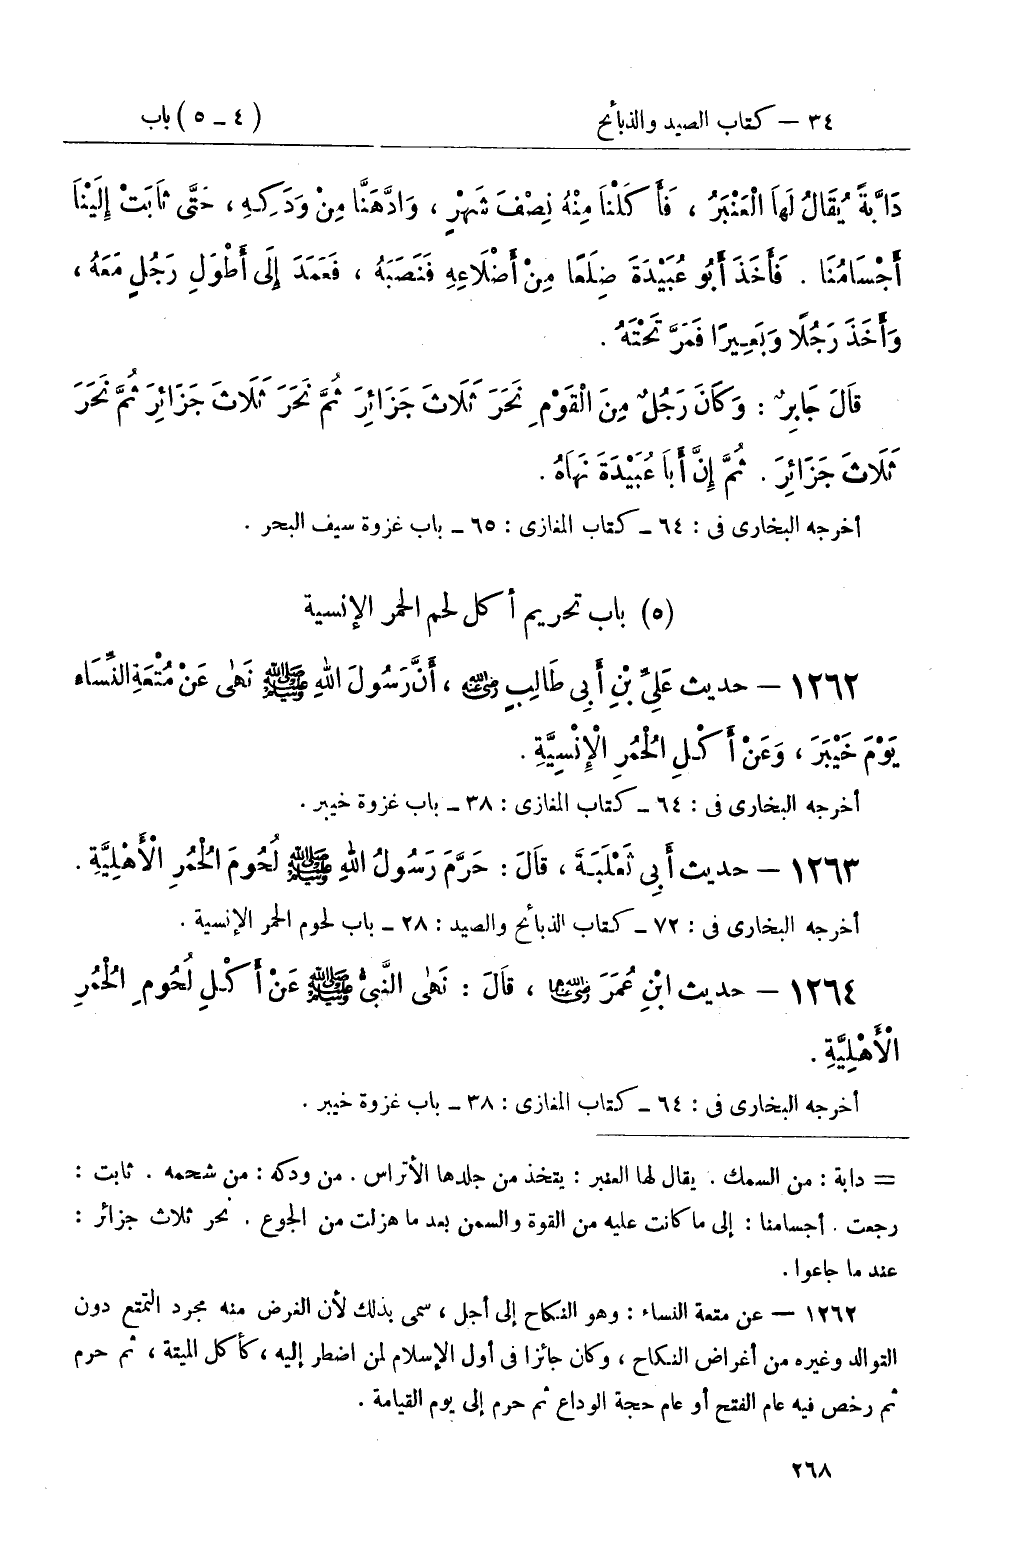 ٣٤ – كتاب الصيد والذبائح
(٤ ـ ٥) باب
دَابَّةً يُقَالُ لَهَا الْعَنْبَرُ ، فَأَكَلْنَا مِنْهُ نِصْفَ شَهْرٍ ، وَادَّهَنَّا مِنْ وَدَكِهِ ، حَتَّى ثَابَتْ إِلَيْنَا
أَجْسَامُنَا . فَأَخَذَ أَبُو عُبَيْدَةَ ضِلَعًا مِنْ أَضْلَاعِهِ فَنَصَبَهُ ، فَعَمَدَ إِلَى أَطْوَلِ رَجُلٍ مَعَهُ ،
وَأَخَذَ رَجُلًا وَبَعِيرًا فَمَرَّ تَحْتَهُ .
قَالَ جَابِرٌ : وَكَانَ رَجُلٌ مِنَ الْقَوْمِ نَحَرَ ثَلَاثَ جَزَائِرَ ثُمَّ نَحَرَ ثَلَاثَ جَزَائِرَ ثُمَّ نَحَرَ
ثَلَاثَ جَزَائِرَ . ثُمَّ إِنَّ أَبَا عُبَيْدَةَ نَهَاهُ .
أخرجه البخارى فى : ٦٤ ـ كتاب المغازى : ٦٥ ـ باب غزوة سيف البحر .
(٥) باب تحريم أكل لحم الحمر الإنسية
١٢٦٢ – حديث عَلِيِّ بْنِ أَبِى طَالِبٍ رضي الله عنه ، أَنَّ رَسُولَ اللهِ ﷺ نَهَى عَنْ مُتْعَةِ النِّسَاء
يَوْمَ خَيْبَرَ ، وَعَنْ أَكْلِ الْحُمُرِ الْإِنْسِيَّةِ .
أخرجه البخارى فى : ٦٤ ـ كتاب المغازى : ٣٨ ـ باب غزوة خيبر .
١٢٦٣ – حديث أَبِى ثَعْلَبَةَ ، قَالَ : حَرَّمَ رَسُولُ اللهِ ﷺ لُحُومَ الْحُمُرِ الْأَهْلِيَّةِ .
أخرجه البخارى فى : ٧٢ ـ كتاب الذبائح والصيد : ٢٨ ـ باب لحوم الحمر الإنسية .
١٢٦٤ – حديث ابْنِ عُمَرَ رضي الله عنهما ، قَالَ : نَهَى النَّبِىُّ ﷺ عَنْ أَكْلِ لُحُومِ الْحُمُرِ
الْأَهْلِيَّةِ .
أخرجه البخارى فى : ٦٤ ـ كتاب المغازى : ٣٨ ـ باب غزوة خيبر .
= دابة : من السمك . يقال لها العنبر : يتخذ من جلدها الأتراس . من ودكه : من شحمه . ثابت :
رجعت . أجسامنا : إلى ما كانت عليه من القوة والسمن بعد ما هزلت من الجوع . نحر ثلاث جزائر :
عند ما جاعوا .
١٢٦٢ – عن متعة النساء : وهو النكاح إلى أجل ، سمى بذلك لأن الغرض منه مجرد التمتع دون
التوالد وغيره من أغراض النكاح ، وكان جائزا فى أول الإسلام لمن اضطر إليه ، كأكل الميتة ، ثم حرم
ثم رخص فيه عام الفتح أو عام حجة الوداع ثم حرم إلى يوم القيامة .
٢٦٨